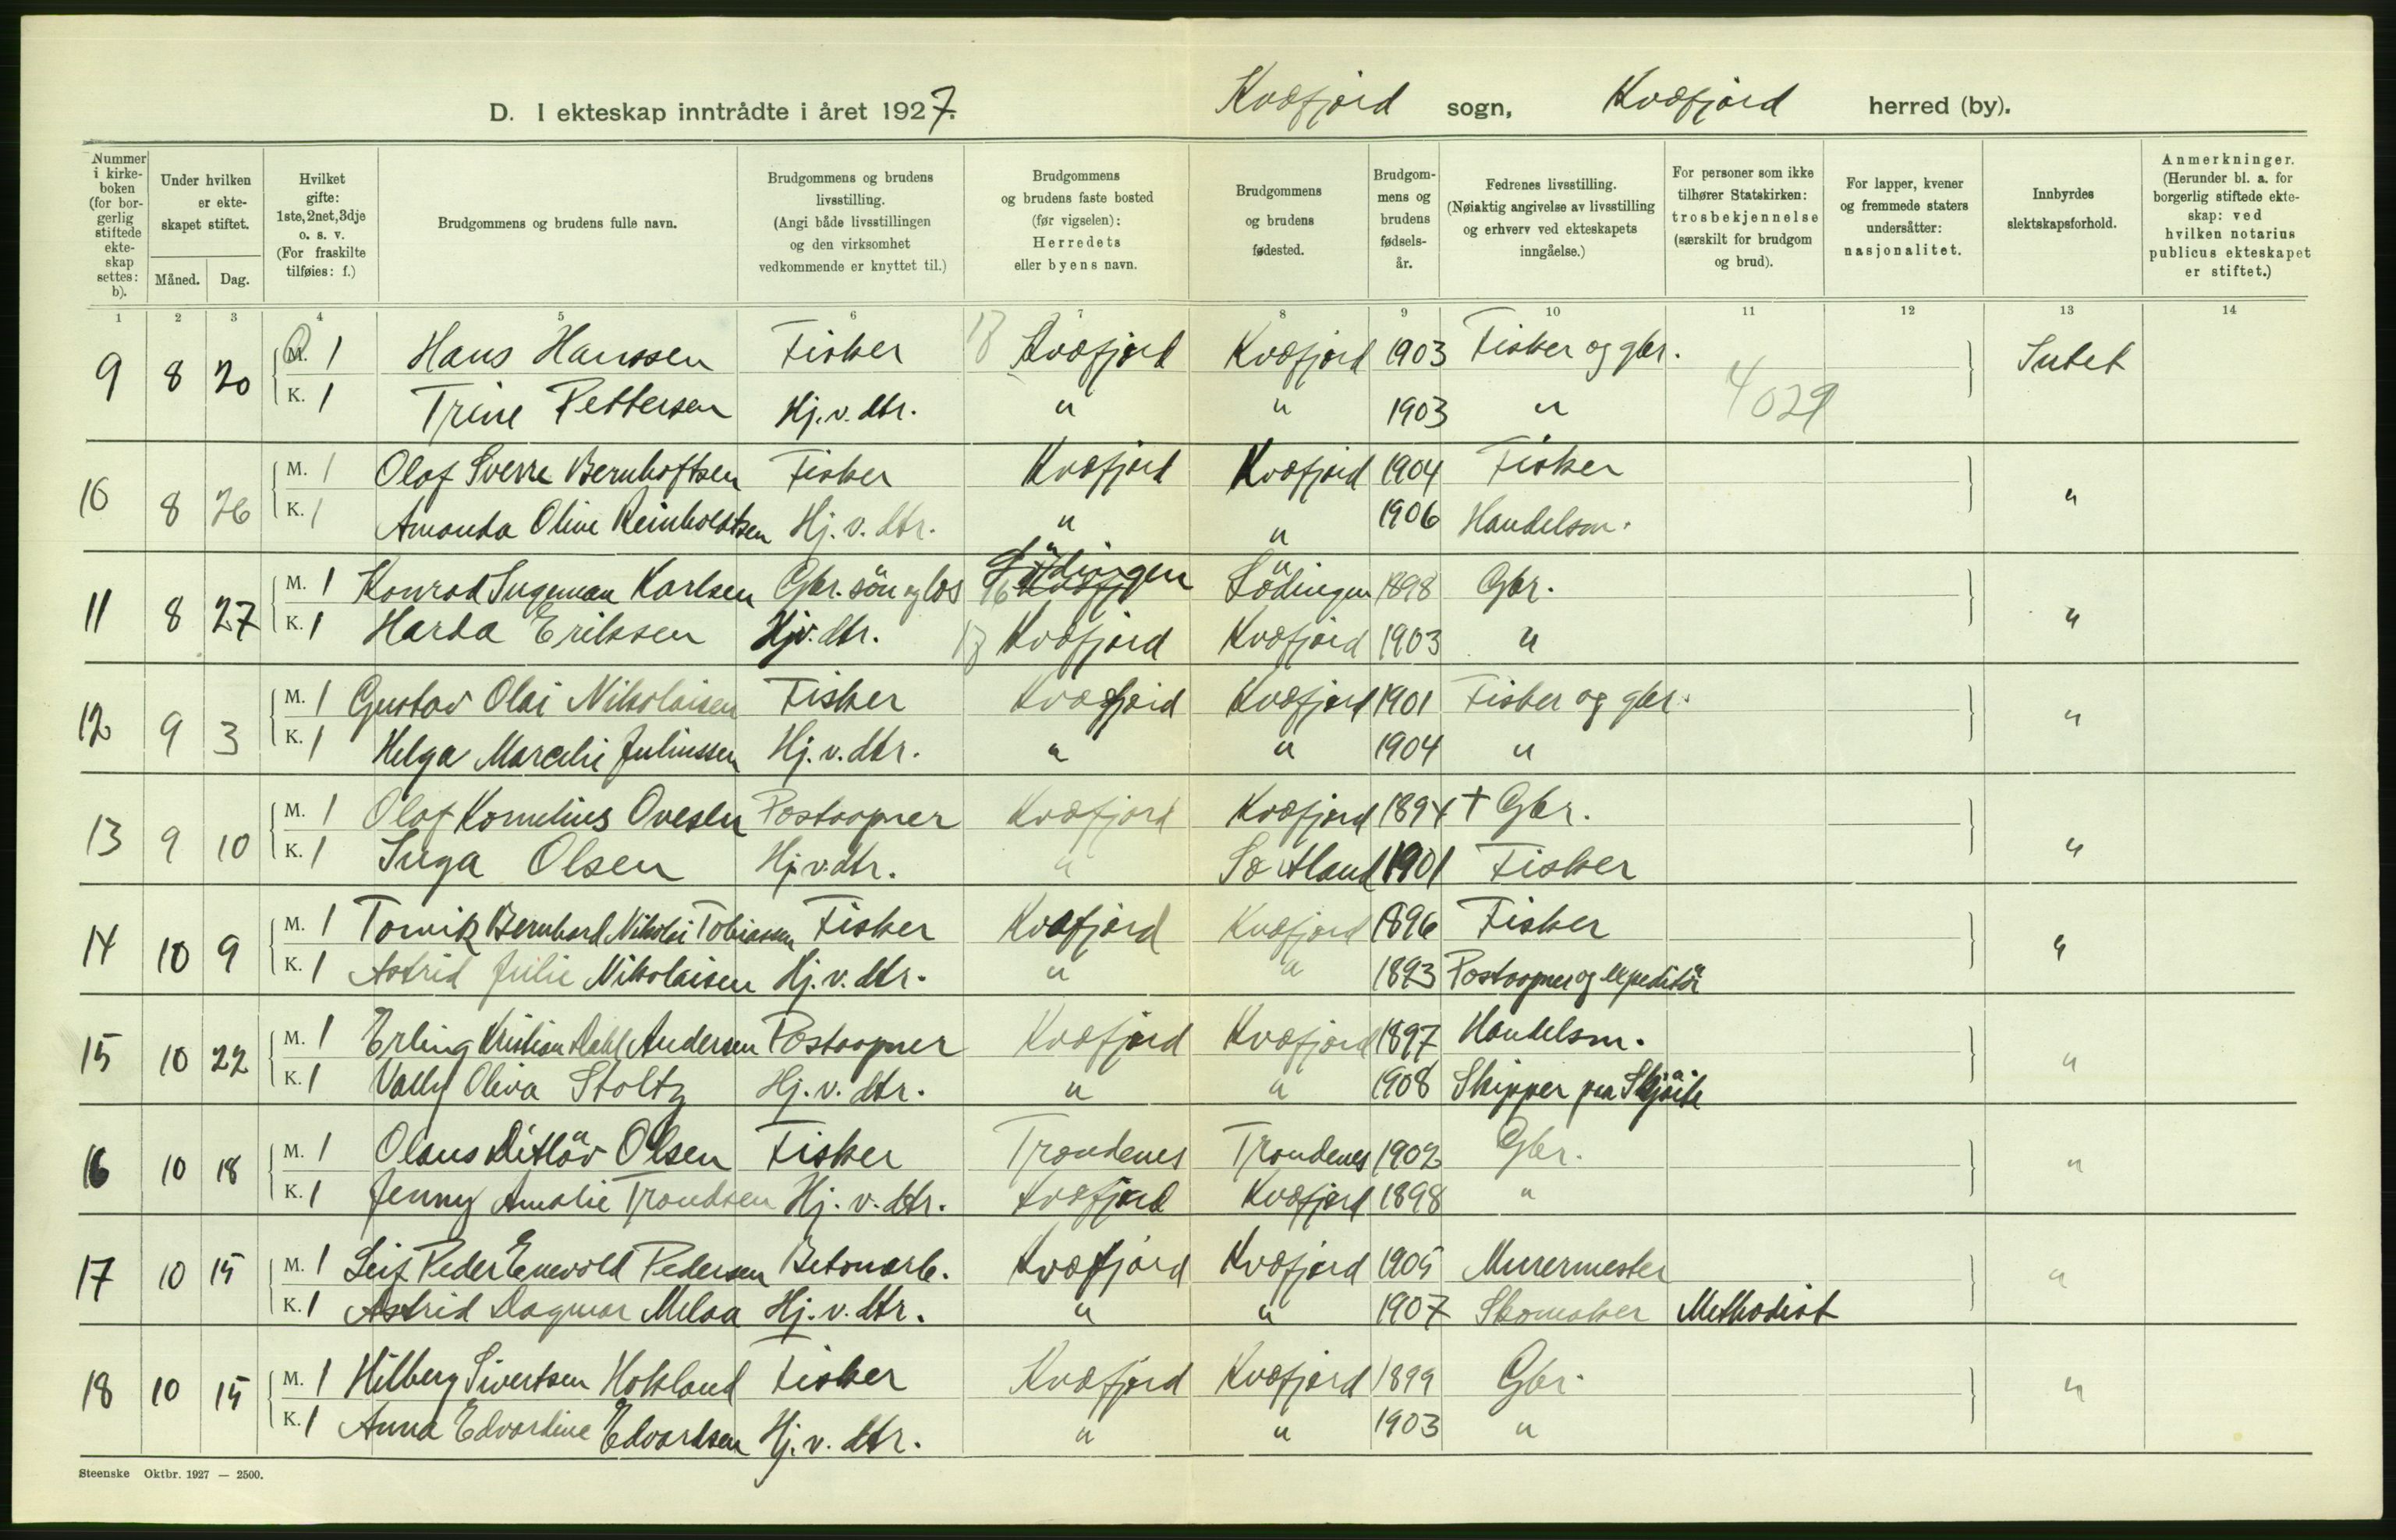 D. I ekteskap inntrådte i året 1927.
Kvæfjord sogn, Kvæfjord herred (by).
Nummer i kirkeboken (for borgerlig stiftede ekteskap settes: b).
Under hvilken er ekteskapet stiftet.
Måned. Dag.
Hvilket gifte: 1ste, 2net, 3dje o. s. v. (For fraskilte tilføies: f.)
Brudgommens og brudens fulle navn.
Brudgommens og brudens livsstilling. (Angi både livsstillingen og den virksomhet vedkommende er knyttet til.)
Brudgommens og brudens faste bosted (før vigselen): Herredets eller byens navn.
Brudgommens og brudens fødested.
Brudgommens og brudens fødselsår.
Fedrenes livsstilling. (Nøiaktig angivelse av livsstilling og erhverv ved ekteskapets inngåelse.)
For personer som ikke tilhører Statskirken: trosbekjennelse (særskilt for brudgom og brud).
For lapper, kvener og fremmede staters undersåtter: nasjonalitet.
Innbyrdes slektskapsforhold.
Anmerkninger. (Herunder bl. a. for borgerlig stiftede ekteskap: ved hvilken notarius publicus ekteskapet er stiftet.)
1 2 3 4 5 6 7 8 9 10 11 12 13 14
9 8 20 M. 1 Hans Hanssen Fisker 13 Kvæfjord Kvæfjord 1903 Fisker og gbr. Intet
K. 1 Trine Pettersen Hj. v. dtr. " " 1903 " 4029
10 8 26 M. 1 Olaf Sverre Bernhoftsen Fisker Kvæfjord Kvæfjord 1904 Fisker "
K. 1 Amanda Oline Reinholdtsen Hj. v. dtr. " " 1906 Handelsm.
11 8 27 M. 1 Konrad Ingeman Karlsen Gbr. sön og los 16 Lödingen Lödingen 1898 Gbr. "
K. 1 Harda Eriksen Hj.v. dtr. 13 Kvæfjord Kvæfjord 1903 "
12 9 3 M. 1 Gustav Olai Nikolaisen Fisker Kvæfjord Kvæfjord 1901 Fisker og gbr. "
K. 1 Helga Marelie Juliussen Hj. v. dtr. " " 1904 "
13 9 10 M. 1 Olaf Kornelius Ovesen Postaapner Kvæfjord Kvæfjord 1894 + Gbr. "
K. 1 Inga Olsen Hj. v. dtr. " Sortland 1901 Fisker
14 10 9 M. 1 Torvik Bernhard Nikolai Tobiassen Fisker Kvæfjord Kvæfjord 1896 Fisker "
K. 1 Astrid Julie Nikolaisen Hj. v. dtr. " " 1893 Postaapner og expeditör
15 10 22 M. 1 Erling Kristian Dahl Andersen Postaapner Kvæfjord Kvæfjord 1897 Handelsm. "
K. 1 Vally Oliva Stoltz Hj. v. dtr. " " 1908 Skipper paa Skjöite
16 10 18 M. 1 Olaus Ditläv Olsen Fisker Trondenes Trondenes 1902 Gbr. "
K. 1 Jenny Amalie Trondsen Hj. v. dtr. Kvæfjord Kvæfjord 1898 "
17 10 15 M. 1 Leif Peder Enevold Pedersen Betonarb. Kvæfjord Kvæfjord 1905 Murermester "
K. 1 Astrid Dagmar Melaa Hj. v. dtr. " " 1907 Skomaker Methodist
18 10 15 M. 1 Hilberg Sivertsen Hokland Fisker Kvæfjord Kvæfjord 1899 Gbr. "
K. 1 Anna Edvardine Edvardsen Hj. v. dtr. " " 1903 "
Steenske Oktbr. 1927 — 2500.